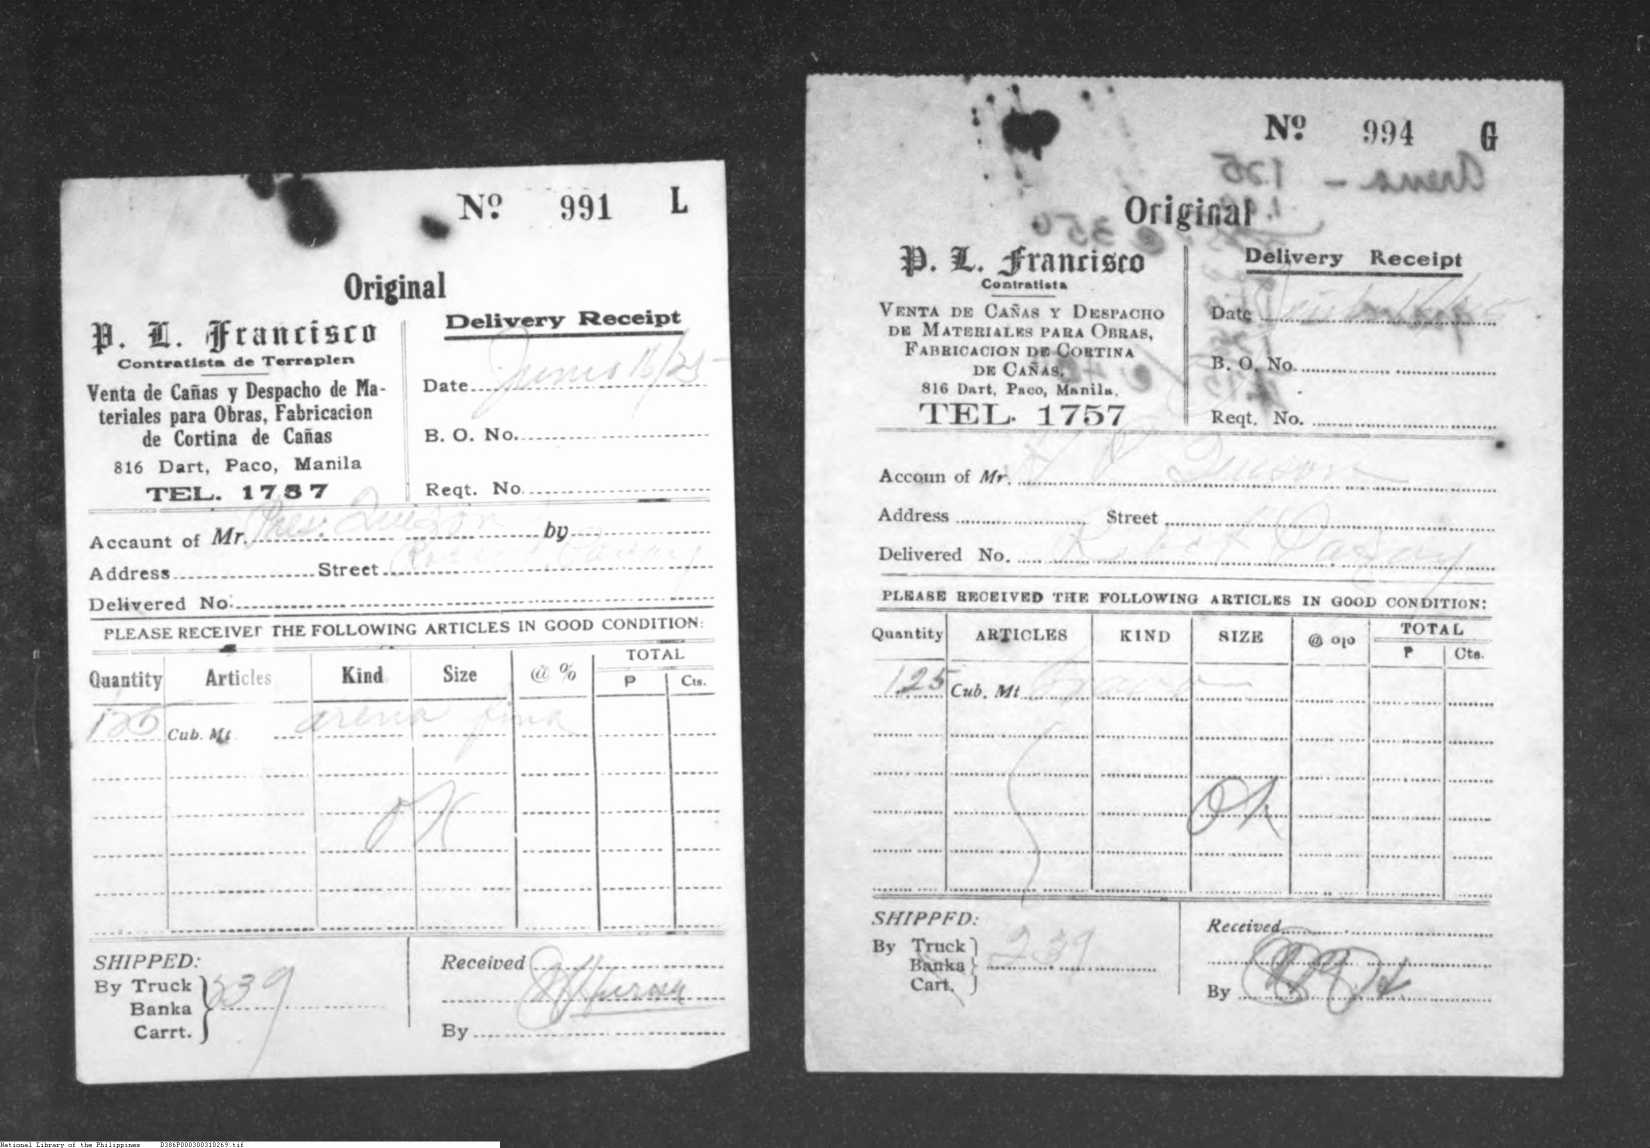 Nº 991 L
Original
P. L. Francisco
Contratista de Terraplen
Venta de Cañas y Despacho de Ma-
teriales para Obras, Fabricacion
de Cortina de Cañas
816 Dart, Paco, Manila
TEL. 1757
Delivery Receipt
Date Junio 16/25
B. O. No.
Reqt. No.
Accaunt of Mr. Pres. Quezon by
Address Street Robert Dagoy
Delivered No.
PLEASE RECEIVEF THE FOLLOWING ARTICLES IN GOOD CONDITION:
Quantity Articles Kind Size @ % TOTAL
P Cts.
125 Cub. Mt. arena fina
OK
SHIPPED:
By Truck 239
Banka
Carrt.
Received
By
Nº 994 G
Arena - 125
@ 350
Original
P. L. Francisco
Contratista
VENTA DE CAÑAS Y DESPACHO
DE MATERIALES PARA OBRAS,
FABRICACION DE CORTINA
DE CAÑAS,
816 Dart, Paco, Manila.
TEL. 1757
Delivery Receipt
Date
B. O. No.
Reqt. No.
Accoun of Mr. Quezon
Address Street
Delivered No. Robert Dagoy
PLEASE RECEIVED THE FOLLOWING ARTICLES IN GOOD CONDITION:
Quantity ARTICLES KIND SIZE @ o|o TOTAL
P Cts.
1.25 Cub. Mt
OK
SHIPPFD:
By Truck
Banka 239
Cart.
Received
By
National Library of the Philippines D386P000300310269.tif